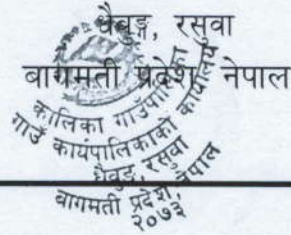 धैवुङ्ग, रसुवा
बागमती प्रदेश, नेपाल
कालिका गाउँपालिका
गाउँ कार्यपालिकाको कार्यालय
धैवुङ्ग, रसुवा
बागमती प्रदेश, नेपाल
२०७३